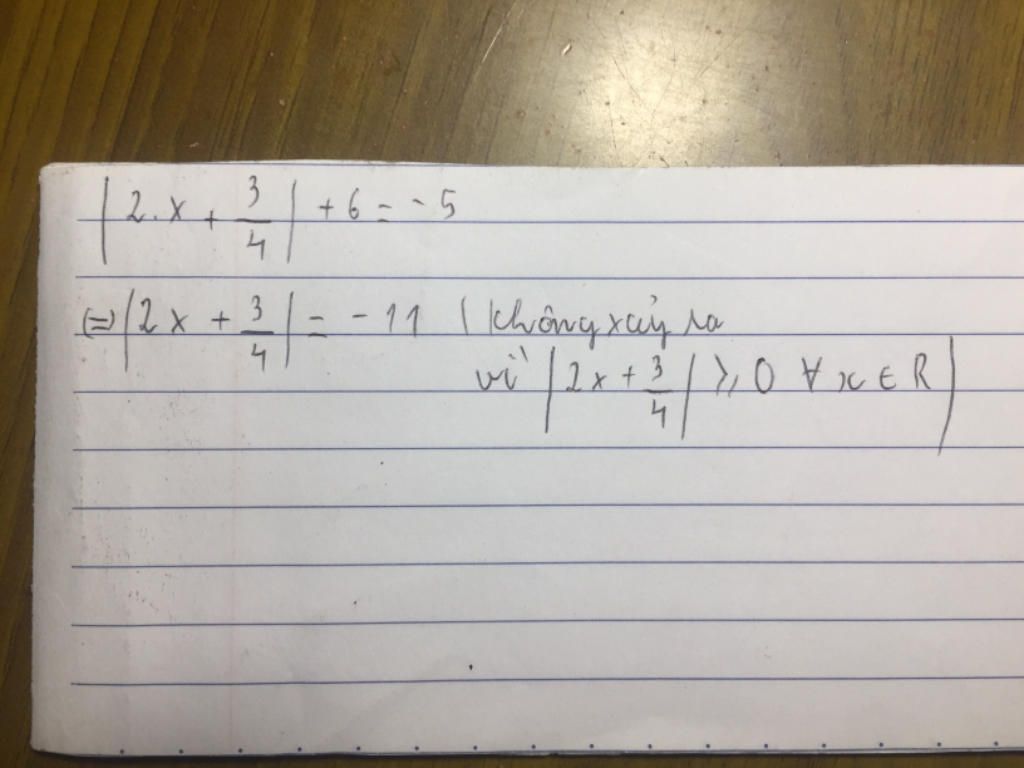 | 2.x + 3/4 | + 6 = -5
(=) | 2x + 3/4 | = -11 ( không xảy ra
vì | 2x + 3/4 | ⩾ 0 ∀ x ∈ R )